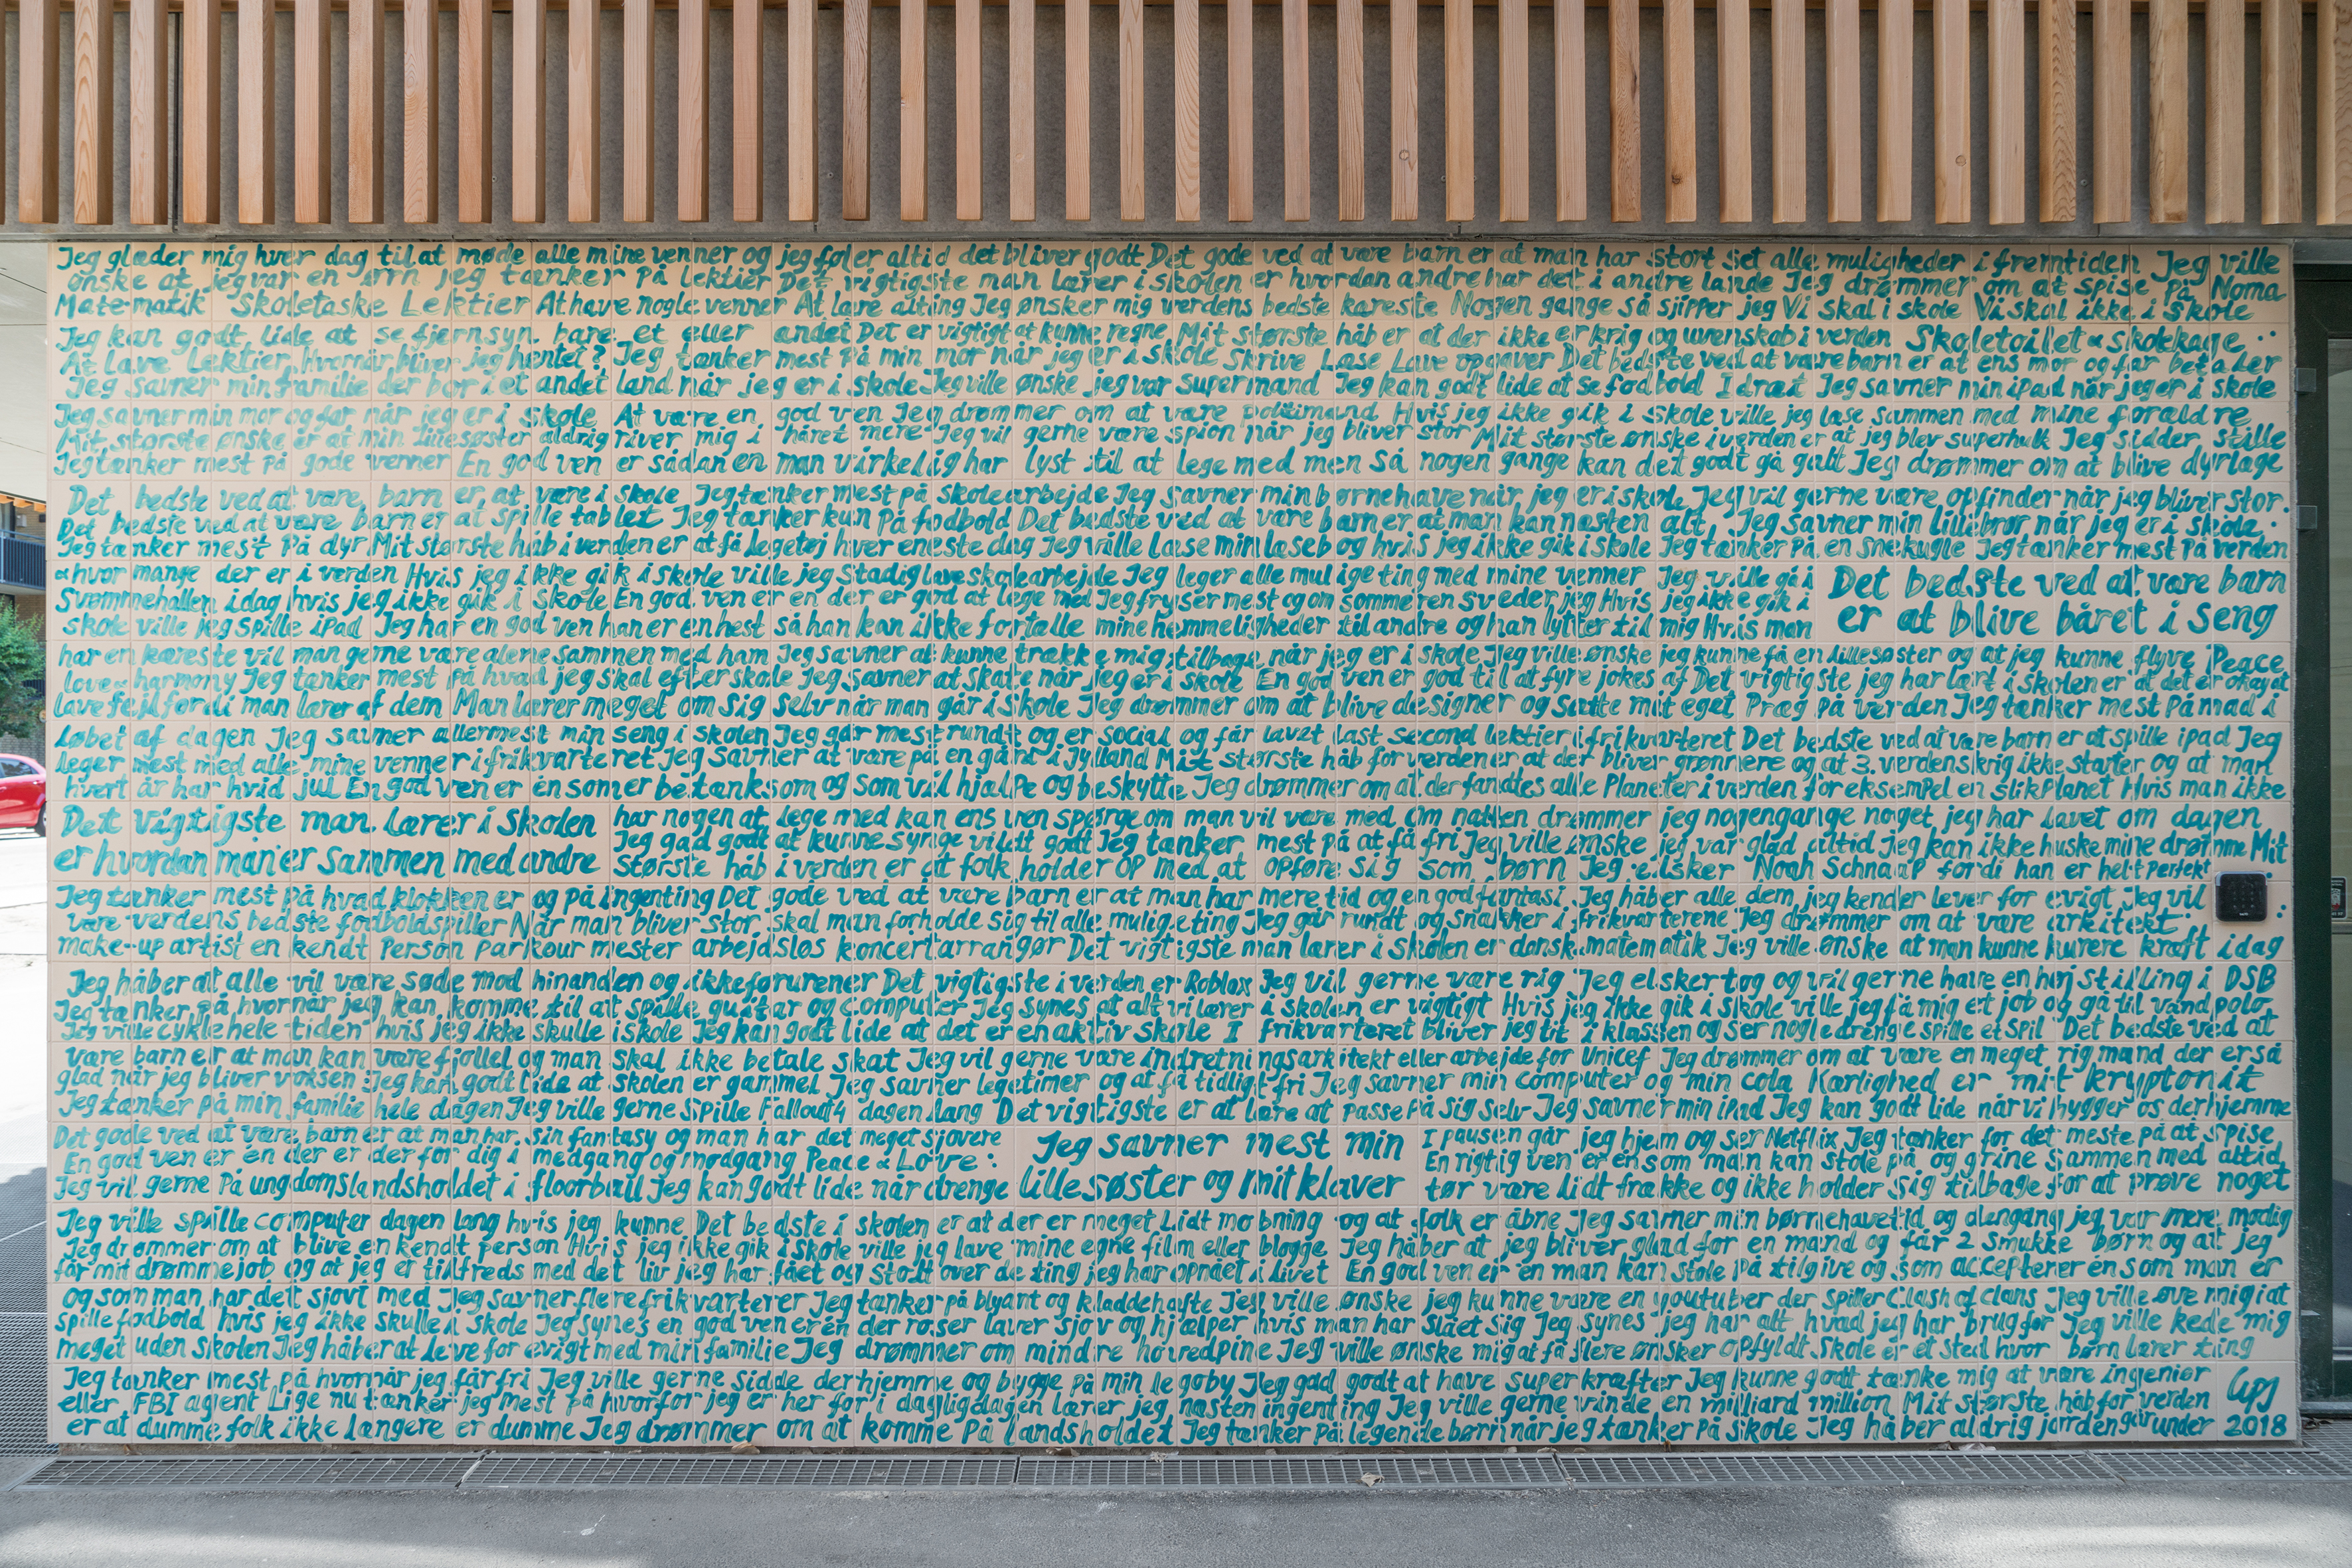 Jeg glæder mig hver dag til at møde alle mine venner og jeg føler altid det bliver godt Det gode ved at være barn er at man har stort set alle muligheder i fremtiden Jeg ville
ønske at jeg var en ørn jeg tænker på lektier Det vigtigste man lærer i skolen er hvordan andre har det i andre lande Jeg drømmer om at spise på Noma
Matematik Skoletaske Lektier At have nogle venner At lære alting Jeg ønsker mig verdens bedste kæreste Nogen gange så sjipper jeg Vi skal i skole Vi skal ikke i skole
Jeg kan godt lide at se fjernsyn bare et eller andet Det er vigtigt at kunne regne Mit største håb er at der ikke er krig og uvenskab i verden Skoletoilet & skolekage
At lave Lektier Hvornår bliver jeg hentet? Jeg tænker mest på min mor når jeg er i skole Skrive Læse Lave opgaver Det bedste ved at være barn er at ens mor og far betaler
Jeg savner min familie der bor i et andet land når jeg er i skole Jeg ville ønske jeg var Supermand Jeg kan godt lide at se fodbold Idræt Jeg savner min iPad når jeg er i skole
Jeg savner min mor og far når jeg er i skole At være en god ven Jeg drømmer om at være politimand Hvis jeg ikke gik i skole ville jeg læse sammen med mine forældre
Mit største ønske er at min lillesøster aldrig river mig i håret mere Jeg vil gerne være spion når jeg bliver stor Mit største ønske i verden er at jeg blev superhulk Jeg sidder stille
Jeg tænker mest på gode venner En god ven er sådan en man virkelig har lyst til at lege med men så nogen gange kan det godt gå galt Jeg drømmer om at blive dyrlæge
Det bedste ved at være barn er at være i skole Jeg tænker mest på skolearbejde Jeg savner min børnehave når jeg er i skole Jeg vil gerne være opfinder når jeg bliver stor.
Det bedste ved at være barn er at spille tablet Jeg tænker kun på fodbold Det bedste ved at være barn er at man kan næsten alt Jeg savner min lillebror når jeg er i skole
Jeg tænker mest på dyr Mit største håb i verden er at få legetøj hver eneste dag Jeg ville læse min læsebog hvis jeg ikke gik i skole Jeg tænker på en snekugle Jeg tænker mest på verden
& hvor mange der er i verden Hvis jeg ikke gik i skole ville jeg stadig lave skolearbejde Jeg leger alle mulige ting med mine venner Jeg ville gå i
Svømmehallen idag hvis jeg ikke gik i skole En god ven er en der er god at lege med Jeg fryser mest og om sommeren sveder jeg Hvis jeg ikke gik i
skole ville jeg spille iPad Jeg har en god ven han er en hest så han kan ikke fortælle mine hemmeligheder til andre og han lytter til mig Hvis man
Det bedste ved at være barn
er at blive båret i seng
har en kæreste vil man gerne være alene sammen med ham Jeg savner at kunne trække mig tilbage når jeg er i skole Jeg ville ønske jeg kunne få en lillesøster og at jeg kunne flyve Peace
love & harmony Jeg tænker mest på hvad jeg skal efter skole Jeg savner at skate når jeg er i skole En god ven er god til at fyre jokes af Det vigtigste jeg har lært i skolen er at det er okay at
lave fejl fordi man lærer af dem Man lærer meget om sig selv når man går i skole Jeg drømmer om at blive designer og sætte mit eget præg på verden Jeg tænker mest på mad i
løbet af dagen Jeg savner allermest min seng i skolen Jeg går mest rundt og er social og får lavet last second lektier i frikvarteret Det bedste ved at være barn er at spille ipad Jeg
leger mest med alle mine venner i frikvarteret Jeg savner at være på en gård i Jylland Mit største håb for verden er at det bliver grønnere og at 3. verdenskrig ikke starter og at man
hvert år har hvid jul En god ven er en som er betænksom og som vil hjælpe og beskytte Jeg drømmer om at der fandtes alle planeter i verden for eksempel en slikplanet Hvis man ikke
Det vigtigste man lærer i skolen
er hvordan man er sammen med andre
har nogen at lege med kan ens ven spørge om man vil være med Om natten drømmer jeg nogengange noget jeg har lavet om dagen
Jeg gad godt at kunne synge vildt godt Jeg tænker mest på at få fri Jeg ville ønske jeg var glad altid Jeg kan ikke huske mine drømme Mit
største håb i verden er at folk holder op med at opføre sig som børn Jeg elsker Noah Schnapp fordi han er helt perfekt
Jeg tænker mest på hvad klokken er og på ingenting Det gode ved at være barn er at man har mere tid og en god fantasi Jeg håber alle dem jeg kender lever for evigt Jeg vil
være verdens bedste fodboldspiller Når man bliver stor skal man forholde sig til alle mulige ting Jeg går rundt og snakker i frikvarterene Jeg drømmer om at være arkitekt
make-up artist en kendt person Parkour mester arbejdsløs koncertarrangør Det vigtigste man lærer i skolen er dansk matematik Jeg ville ønske at man kunne kurere kræft idag
Jeg håber at alle vil være søde mod hinanden og ikke forurener Det vigtigste i verden er Roblox Jeg vil gerne være rig Jeg elsker tog og vil gerne have en høj stilling i DSB
Jeg tænker på hvornår jeg kan komme til at spille guitar og computer Jeg synes at alt vi lærer i skolen er vigtigt Hvis jeg ikke gik i skole ville jeg få mig et job og gå til vandpolo
Jeg ville cykle hele tiden hvis jeg ikke skulle i skole Jeg kan godt lide at det er en aktiv skole I frikvarteret bliver jeg tit i klassen og ser nogle drenge spille et spil Det bedste ved at
være barn er at man kan være fjollet og man skal ikke betale skat Jeg vil gerne være indretningsarkitekt eller arbejde for Unicef Jeg drømmer om at være en meget rig mand der er så
glad når jeg bliver voksen Jeg kan godt lide at skolen er gammel Jeg savner legetimer og at få tidligt fri Jeg savner min computer og min cola Kærlighed er mit kryptonit
Jeg tænker på min familie hele dagen Jeg ville gerne spille Fallout 4 dagen lang Det vigtigste er at lære at passe på sig selv Jeg savner min iPad Jeg kan godt lide når vi hygger os derhjemme
Det gode ved at være barn er at man har sin fantasy og man har det meget sjovere
En god ven er en der er der for dig i medgang og modgang Peace & Love
Jeg vil gerne på ungdomslandsholdet i floorball Jeg kan godt lide når drenge
Jeg savner mest min
lillesøster og mit klaver
I pausen går jeg hjem og ser Netflix Jeg tænker for det meste på at spise
En rigtig ven er en som man kan stole på og grine sammen med altid
tør være lidt frække og ikke holder sig tilbage for at prøve noget
Jeg ville spille computer dagen lang hvis jeg kunne Det bedste i skolen er at der er meget lidt mobning og at folk er åbne Jeg savner min børnehavetid og dengang jeg var mere modig
Jeg drømmer om at blive en kendt person Hvis jeg ikke gik i skole ville jeg lave mine egne film eller blogge Jeg håber at jeg bliver glad for en mand og får 2 smukke børn og at jeg
får mit drømmejob og at jeg er tilfreds med det liv jeg har fået og stolt over de ting jeg har opnået i livet En god ven er en man kan stole på tilgive og som accepterer en som man er
og som man har det sjovt med Jeg savner flere frikvarterer Jeg tænker på blyant og kladdehæfte Jeg ville ønske jeg kunne være en youtuber der spiller Clash of clans Jeg ville øve mig i at
spille fodbold hvis jeg ikke skulle i skole Jeg synes en god ven er én der roser laver sjov og hjælper hvis man har slået sig Jeg synes jeg har alt hvad jeg har brug for Jeg ville kede mig
meget uden skolen Jeg håber at leve for evigt med min familie Jeg drømmer om mindre hovedpine Jeg ville ønske mig at få flere ønsker opfyldt Skole er et sted hvor børn lærer ting
Jeg tænker mest på hvornår jeg får fri Jeg ville gerne sidde derhjemme og bygge på min legoby Jeg gad godt at have superkræfter Jeg kunne godt tænke mig at være ingeniør
eller FBI agent Lige nu tænker jeg mest på hvorfor jeg er her for i dagligdagen lærer jeg næsten ingenting Jeg ville gerne vinde en milliard million Mit største håb for verden
er at dumme folk ikke længere er dumme Jeg drømmer om at komme på landsholdet Jeg tænker på legende børn når jeg tænker på skole Jeg håber aldrig jorden går under
2018